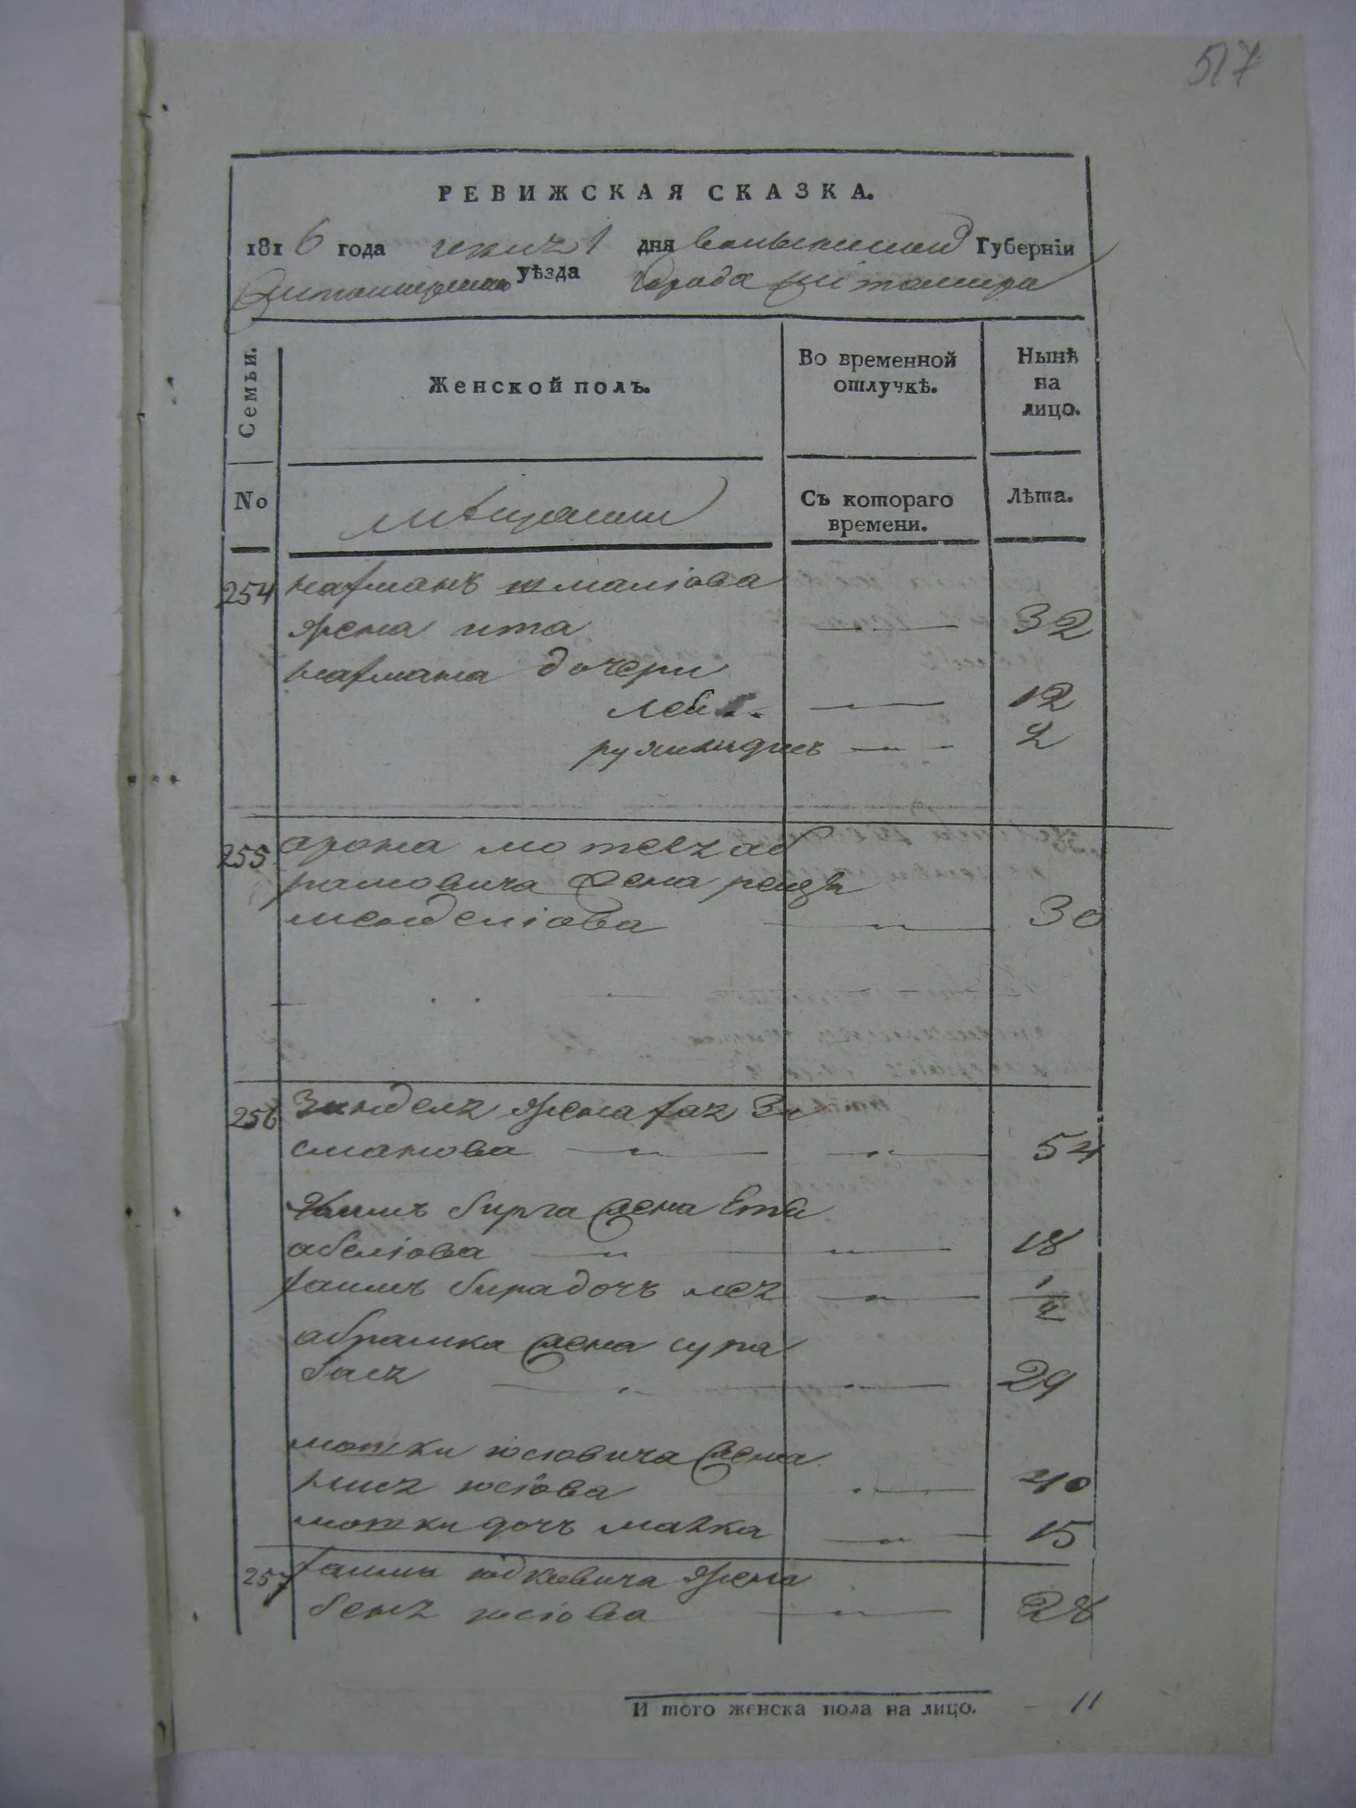 517
РЕВИЖСКАЯ СКАЗКА.
1816 года 1 дня волынской Губернїи
житомирскаго уѣзда города житомира
Семьи.
Женской полъ.
Во временной отлучкѣ.
Нынѣ на лицо.
No
мѣщане
Съ котораго времени.
Лѣта.
254 нахманъ шмаліова
жена ита 32
нахмана дочери
леи 12
2
255 арона мотелz аб
рамовича жена рейзя
менделіова 30
256 зинделz жена хаz Зи
сманова 54
хаимъ бирга жена Ета
абеліова 18
хаимъ бира дочь леz
абрамка жена сура
басz 29
мошки юсіовича жена
юсіова 40
мошки дочь малка 15
257 хаима юдковича жена
бенz юсіова 28
И того женска пола на лицо. 11